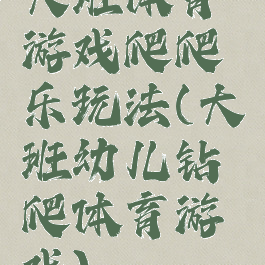 大班体育
游戏爬爬
乐玩法(大
班幼儿钻
爬体育游
戏)